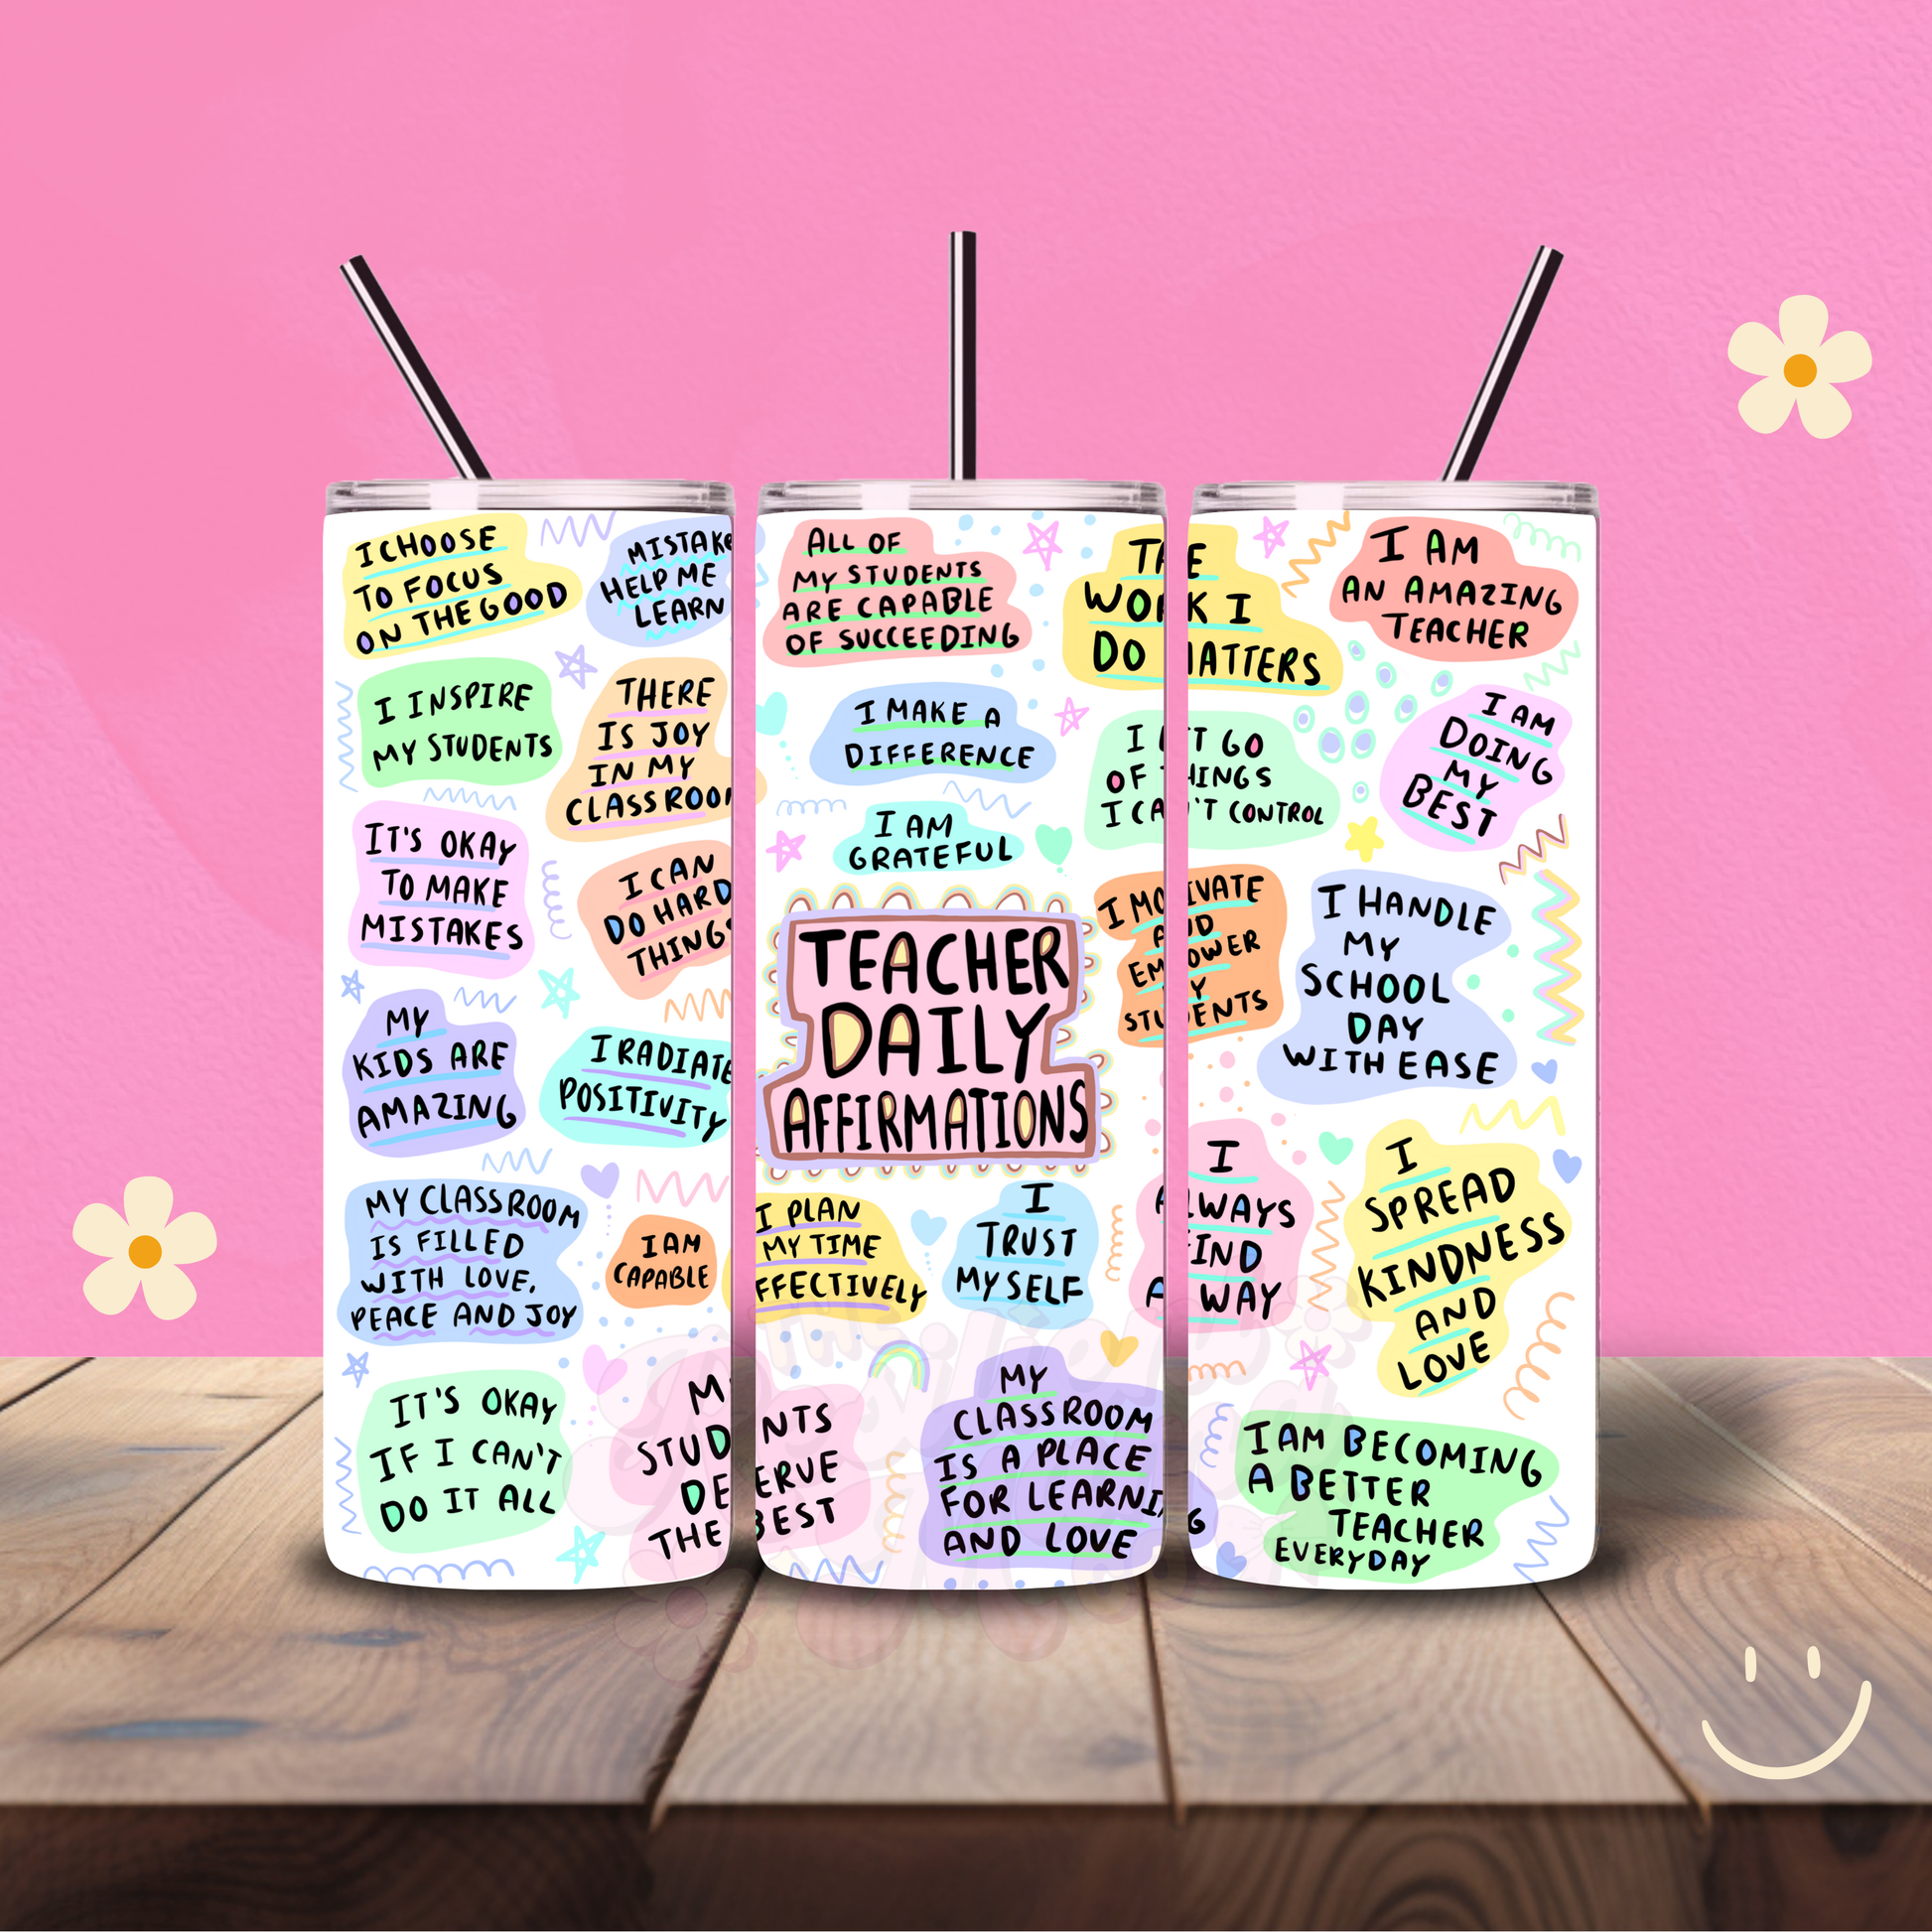 I CHOOSE
TO FOCUS
ON THE GOOD
MISTAKE
HELP ME
LEARN
I INSPIRE
MY STUDENTS
THERE
IS JOY
IN MY
CLASSROOM
IT'S OKAY
TO MAKE
MISTAKES
I CAN
DO HARD
THINGS
MY
KIDS ARE
AMAZING
I RADIATE
POSITIVITY
MY CLASSROOM
IS FILLED
WITH LOVE,
PEACE AND JOY
I AM
CAPABLE
IT'S OKAY
IF I CAN'T
DO IT ALL
MY
STUDENTS
DESERVE
THE BEST
ALL OF
MY STUDENTS
ARE CAPABLE
OF SUCCEEDING
I MAKE A
DIFFERENCE
I AM
GRATEFUL
TEACHER
DAILY
AFFIRMATIONS
I PLAN
MY TIME
EFFECTIVELY
I
TRUST
MYSELF
MY
CLASSROOM
IS A PLACE
FOR LEARNING
AND LOVE
THE
WORK I
DO MATTERS
I LET GO
OF THINGS
I CAN'T CONTROL
I MOTIVATE
AND
EMPOWER
MY
STUDENTS
I
ALWAYS
FIND
A WAY
I AM
AN AMAZING
TEACHER
I AM
DOING
MY
BEST
I HANDLE
MY
SCHOOL
DAY
WITH EASE
I
SPREAD
KINDNESS
AND
LOVE
I AM BECOMING
A BETTER
TEACHER
EVERYDAY